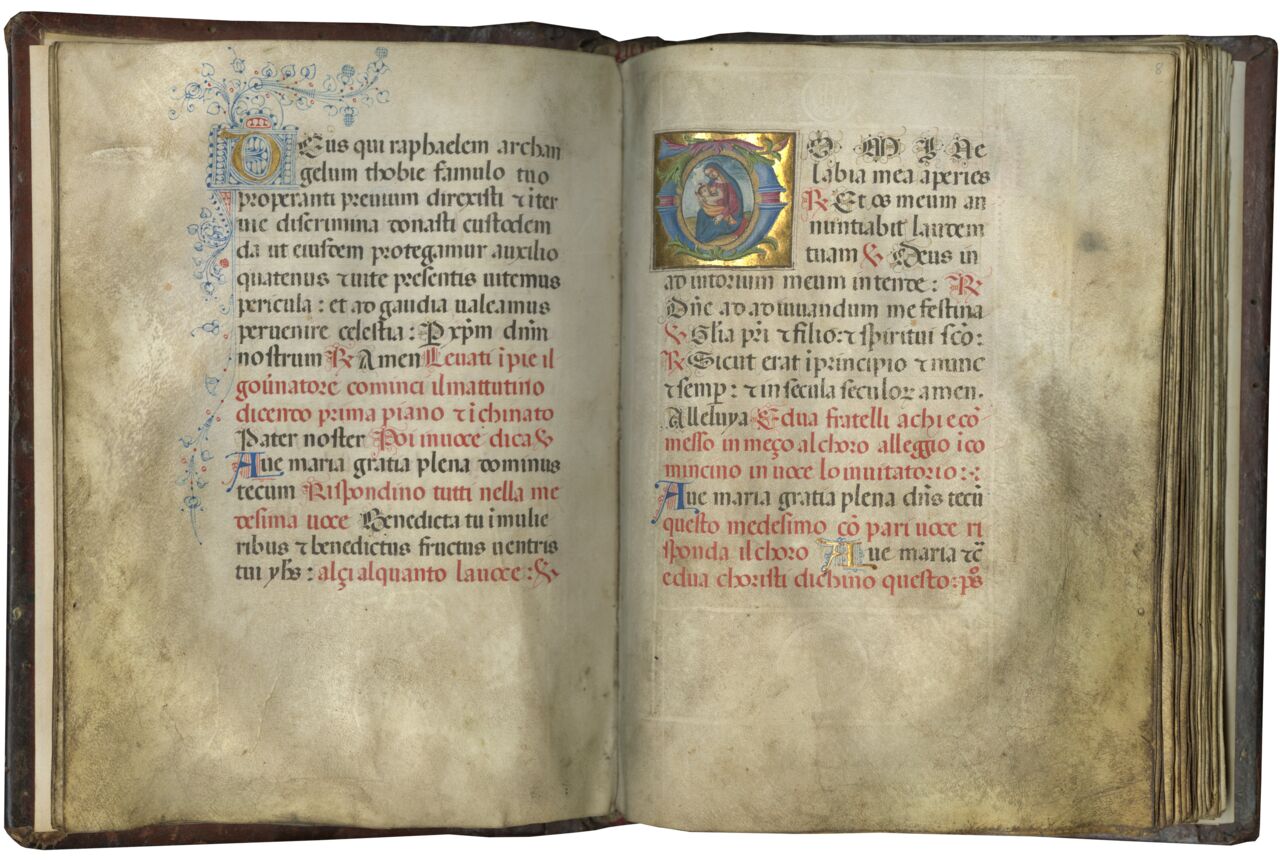 DEus qui raphaelem archan
gelum thobie famulo tuo
properanti previum direxisti ⁊ iter
uie discrimina donasti custodem
da ut eiusdem protegamur auxilio
quatenus ⁊ uite presentis uitemus
pericula : et ad gaudia ualeamus
peruenire celestia : P xp̄m dn̄m
nostrum R Amen Leuati ī pie il
gouernatore cominci il mattutino
dicendo prima piano ⁊ ī chinato
Pater noster Poi in uoce dica V
Aue maria gratia plena dominus
tecum Rispondino tutti nella me
desima uoce Benedicta tu ī mulie
ribus ⁊ benedictus fructus uentris
tui yhs : alçi alquanto la uoce : V
8
DOMINe
labia mea aperies
R Et os meum an
nuntiabit laudem
tuam V Deus in
ad iutorium meum intende : R
Dn̄e ad adiuuandum me festina
V Gl̄ia pr̄i ⁊ filio : ⁊ spiritui sc̄o :
R Sicut erat ī principio ⁊ nunc
⁊ semp : ⁊ in secula seculoꝝ amen.
Alleluya E dua fratelli a chi e cō
messo in meço al choro al leggio ī co
mincino in uoce lo inuitatorio :
Aue maria gratia plena dn̄s tecū
questo medesimo cō pari uoce ri
sponda il choro Aue maria ⁊c̄
e dua choristi dichino questo : ps̄